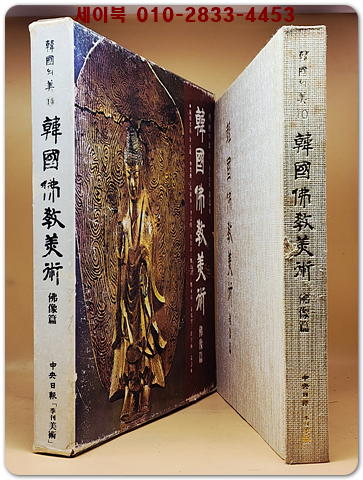 세이북 010-2833-4453
韓國의美 10
韓國佛敎美術
佛像篇
中央日報「季刊美術」
韓國佛敎美術
佛像篇
韓國佛敎美術
佛像篇
韓國의美 10
韓國佛敎美術
佛像篇
中央日報「季刊美術」